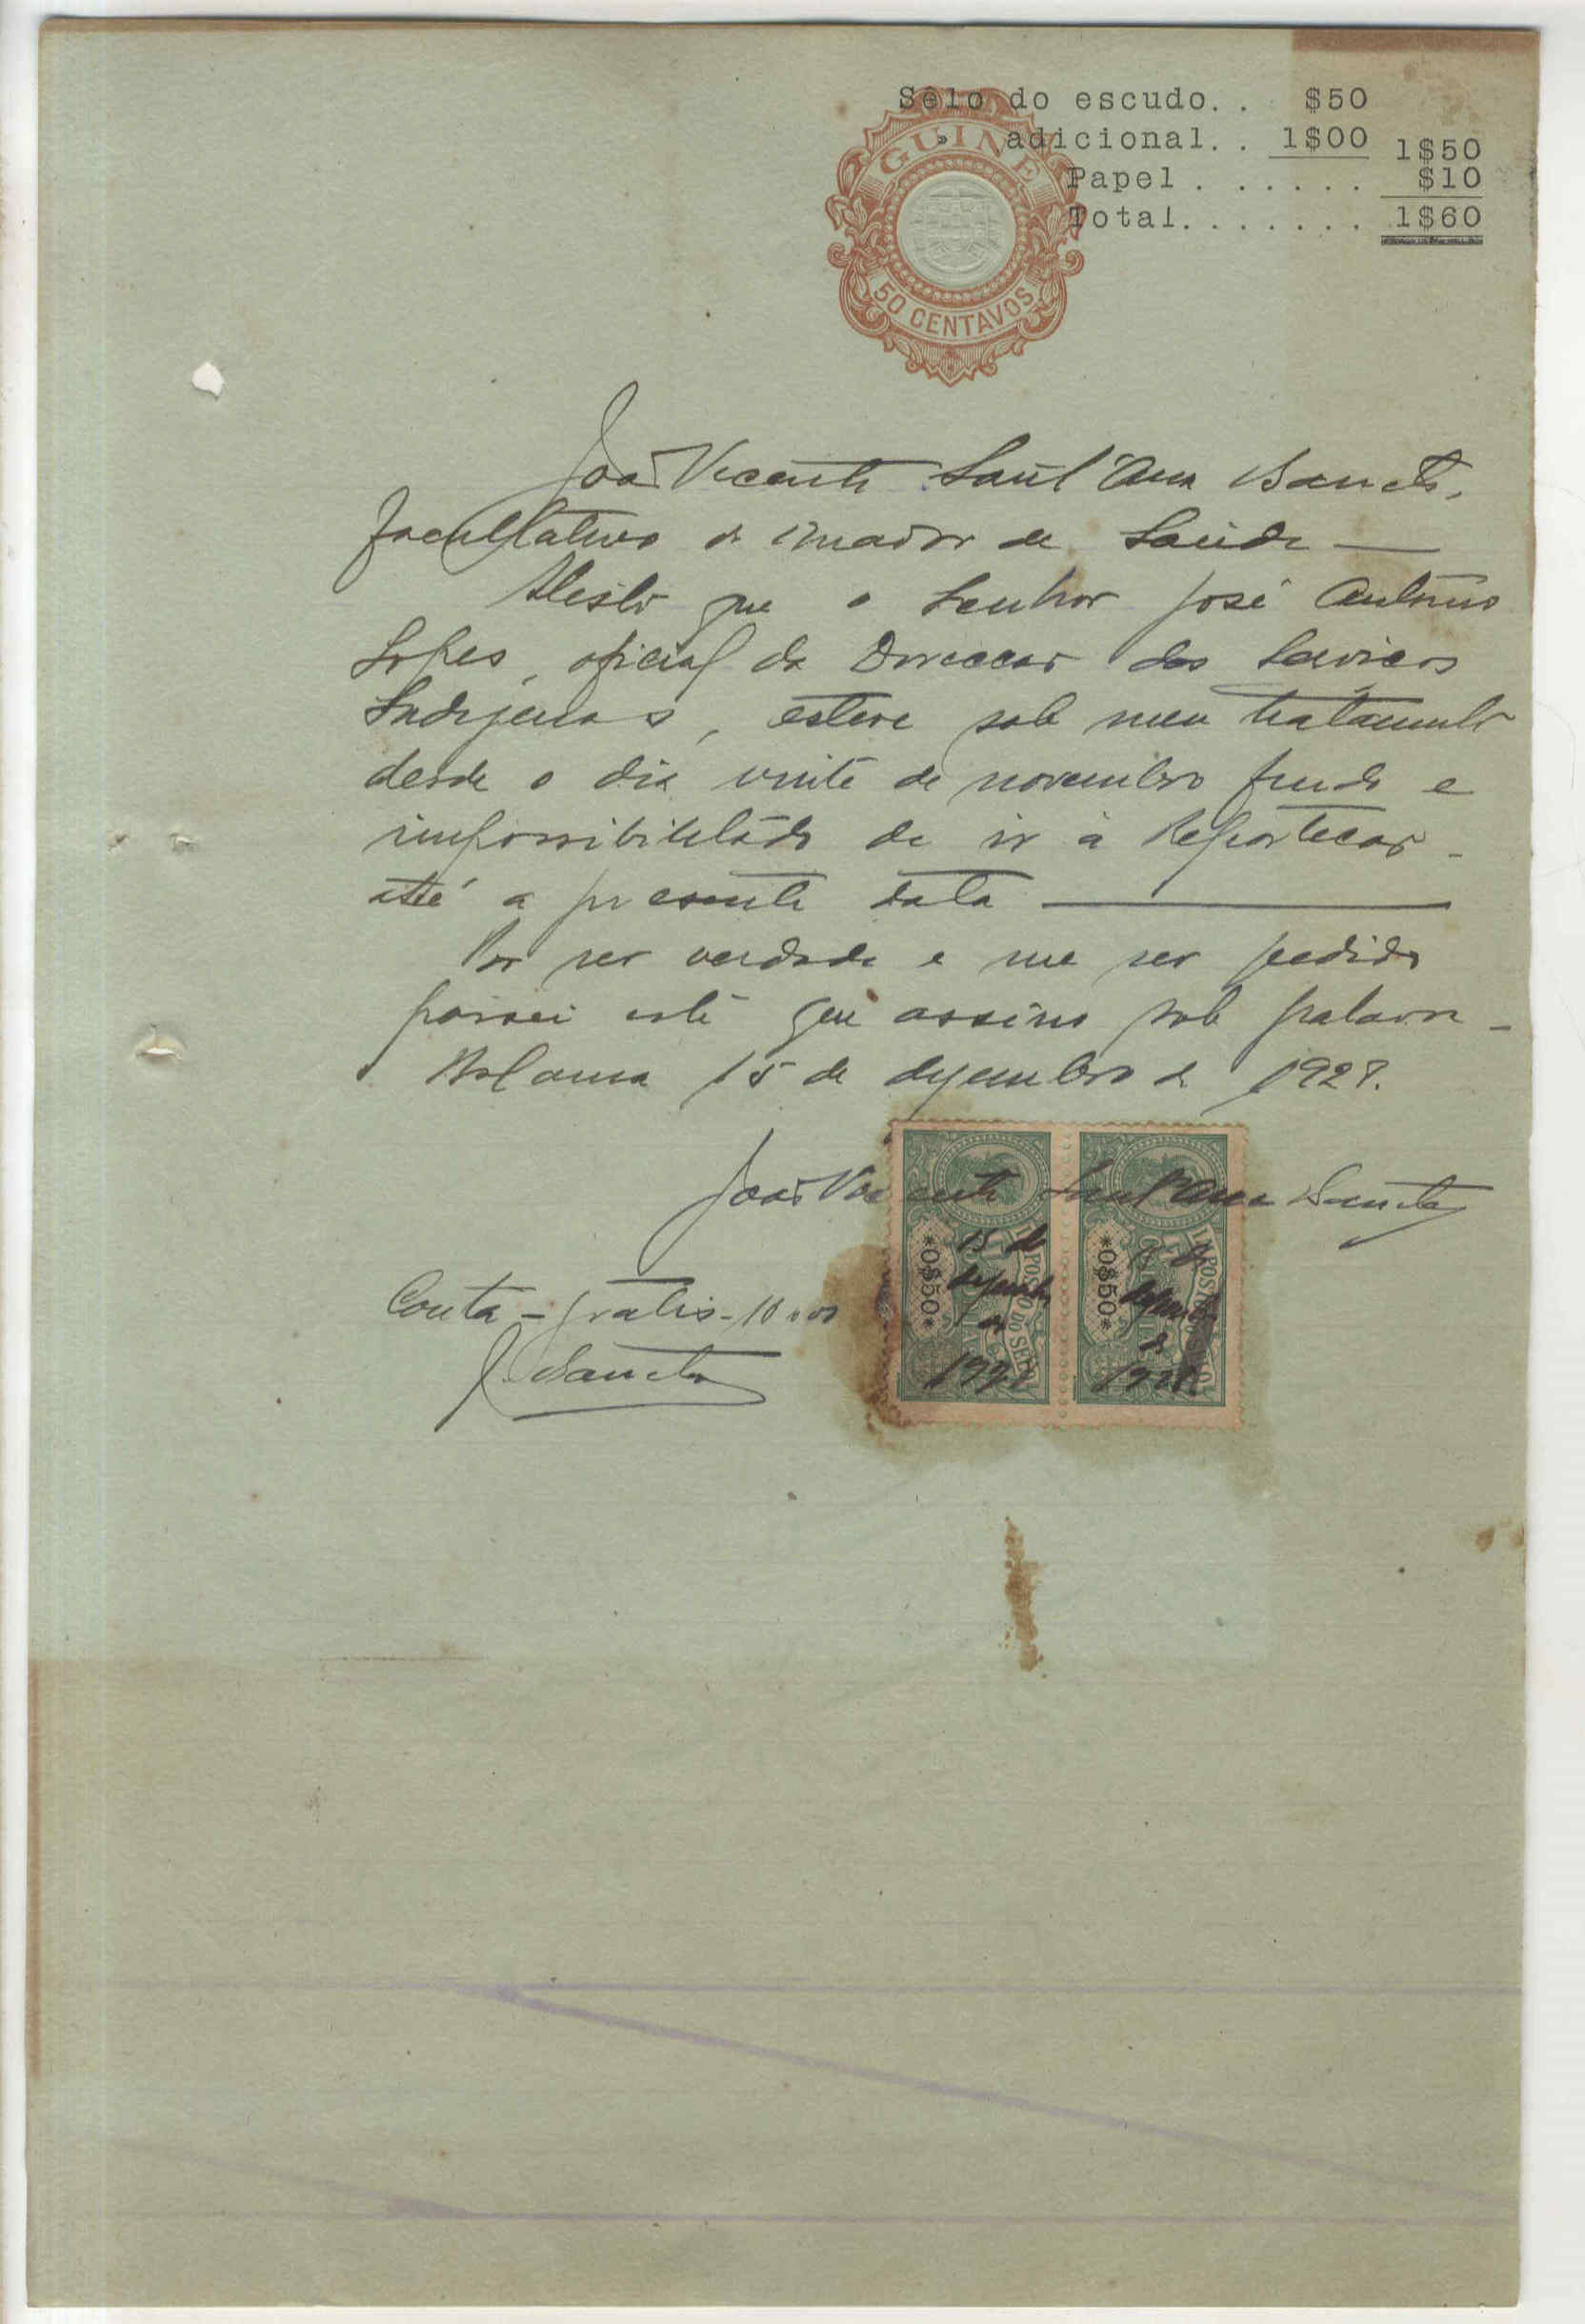 Sêlo do escudo. . $50
» adicional. . 1$00 1$50
Papel . . . . . . $10
Total. . . . . . . 1$60
GUINÉ
50 CENTAVOS
João Vicente Sant'Ana Barreto,
facultativo do quadro de Saúde —
Atesto que o Senhor José António
Lopes, oficial da Direccao dos Servicos
Indigenas, esteve sob meu tratamento
desde o dia vinte de novembro findo e
impossibilitado de ir à Repartecao -
até a presente data —
Por ser verdade e me ser pedido
passei este que assino sob palavra -
Bolama 15 de dezembro de 1928.
João Vicente Sant'Ana Barreto
Conta - gratis -
J. Barreto
IMPOSTO DO SELO
*0$50*
15 de
dezembro
de
1928
IMPOSTO DO SELO
*0$50*
15 de
dezembro
de
1928